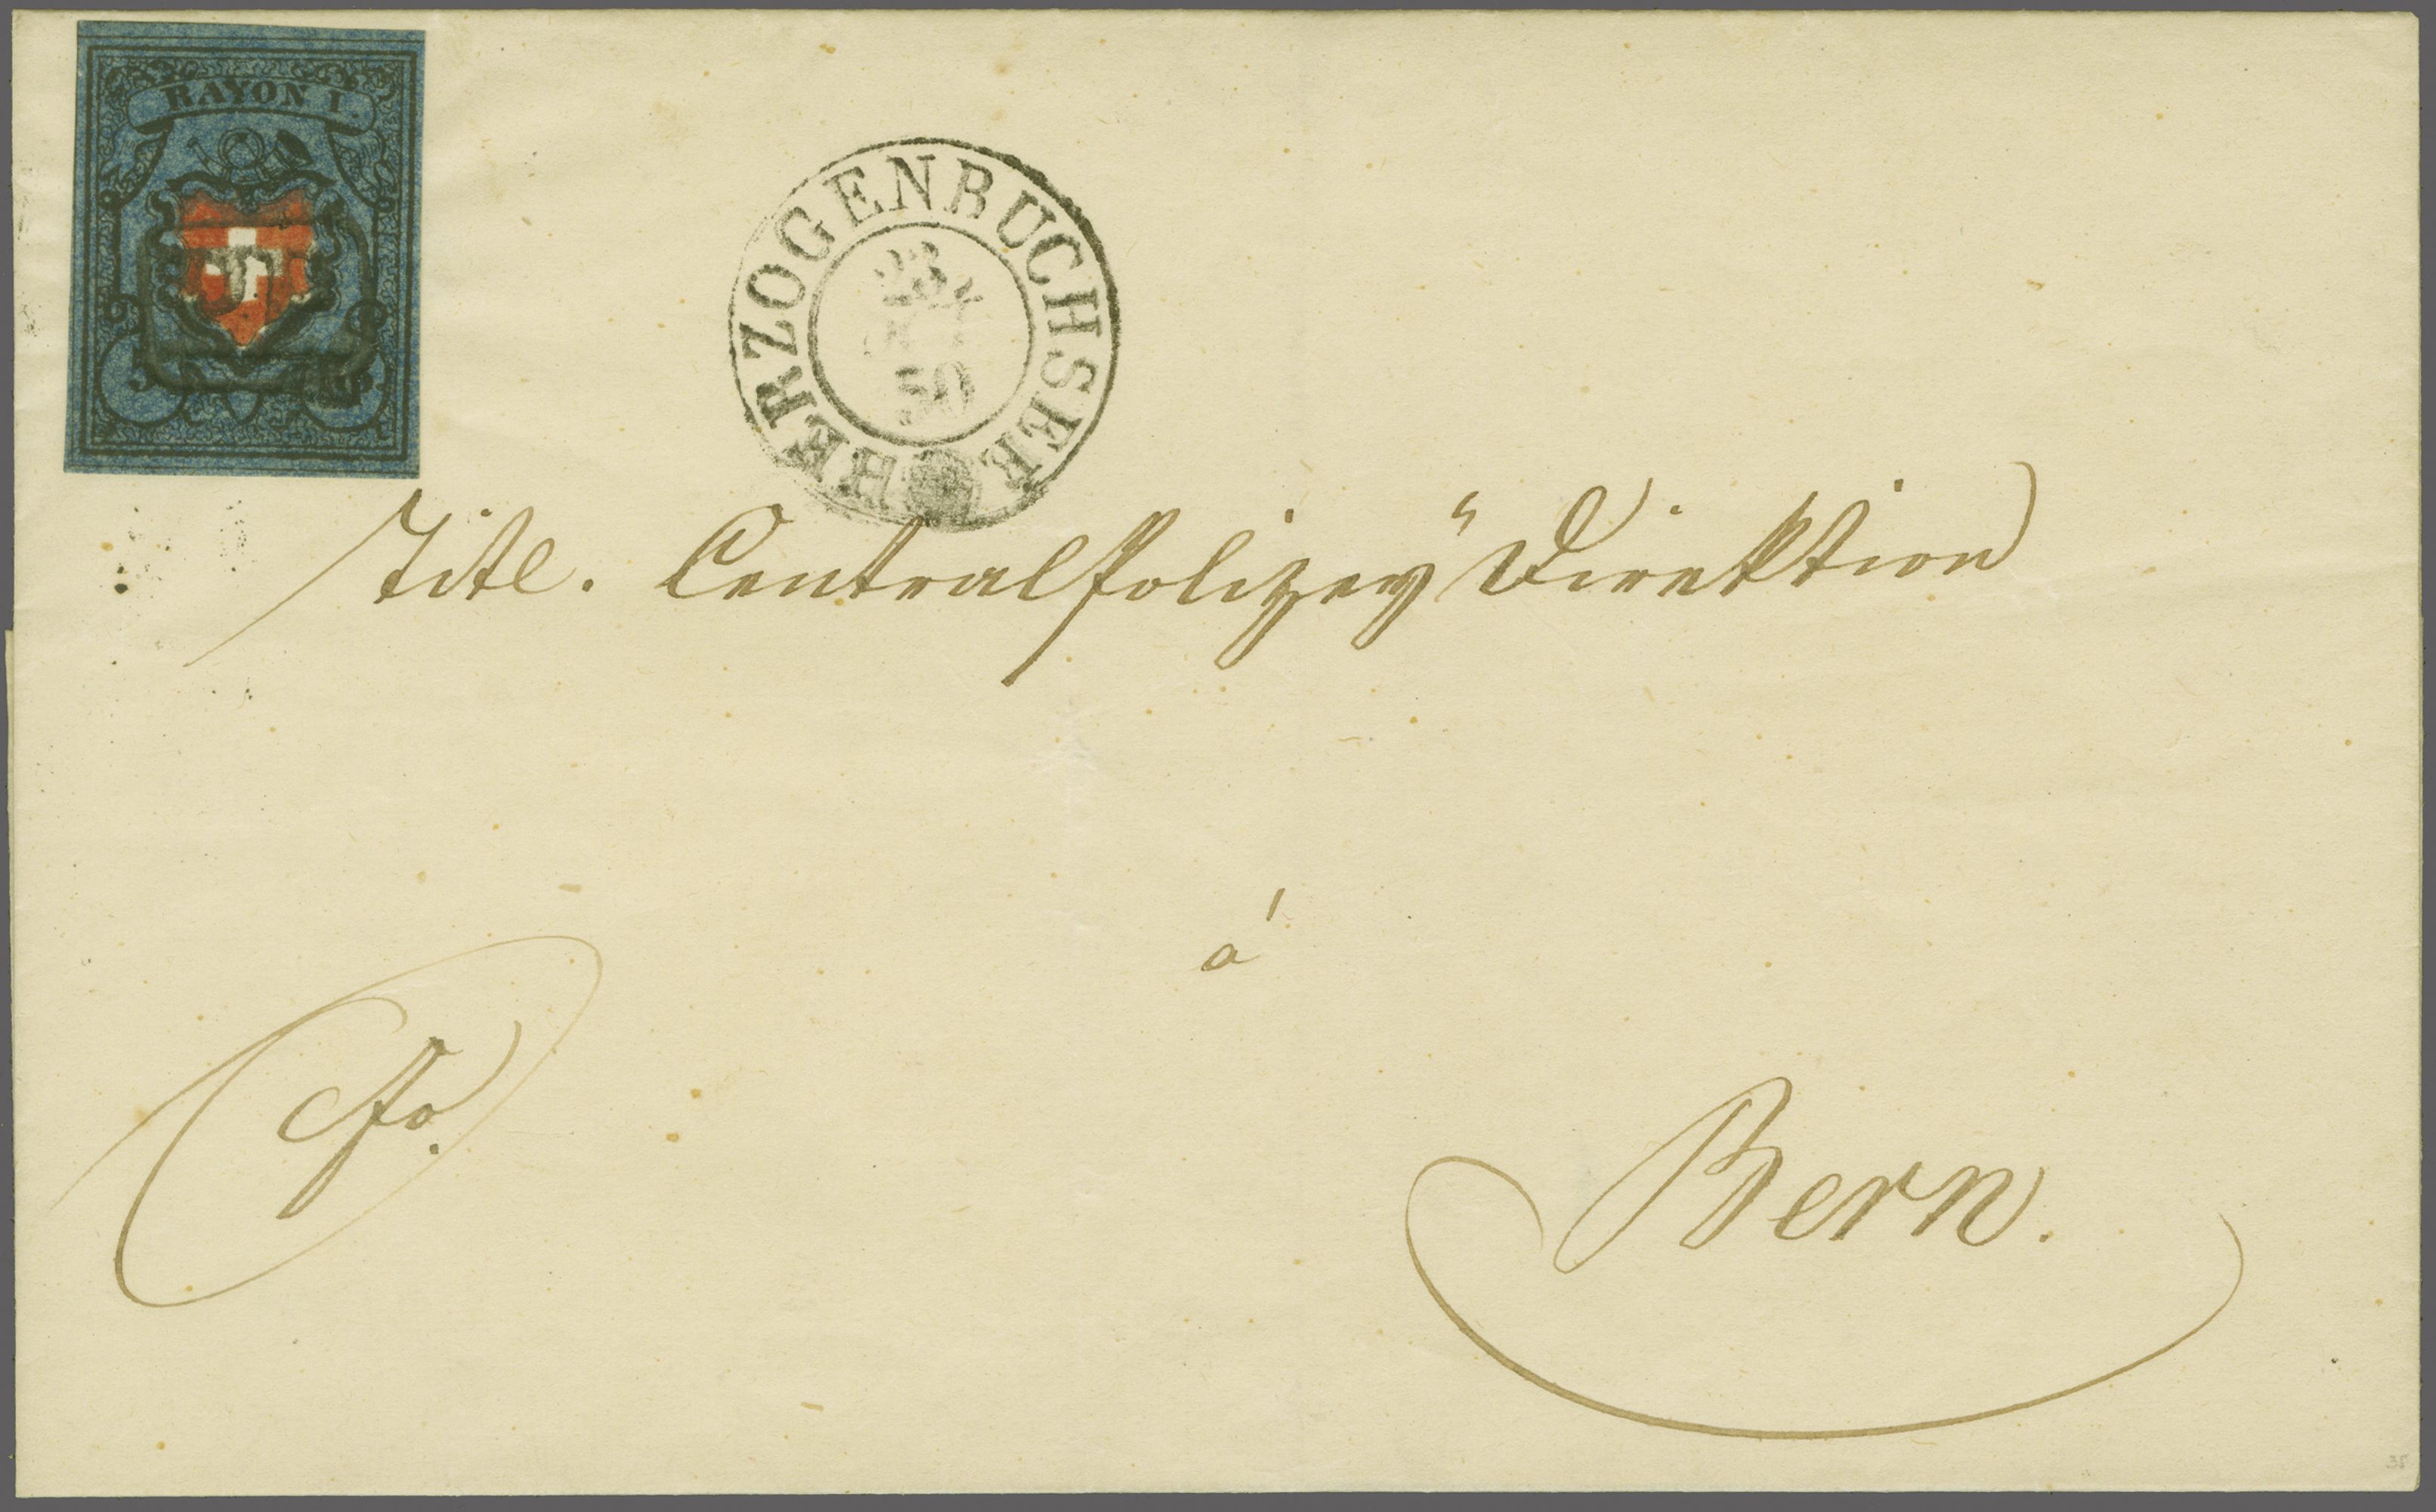 RAYON I.
5 Rp.
HERZOGENBUCHSEE
23
50
Titl. Centralpolizey Direktion
á
fo.
Bern.